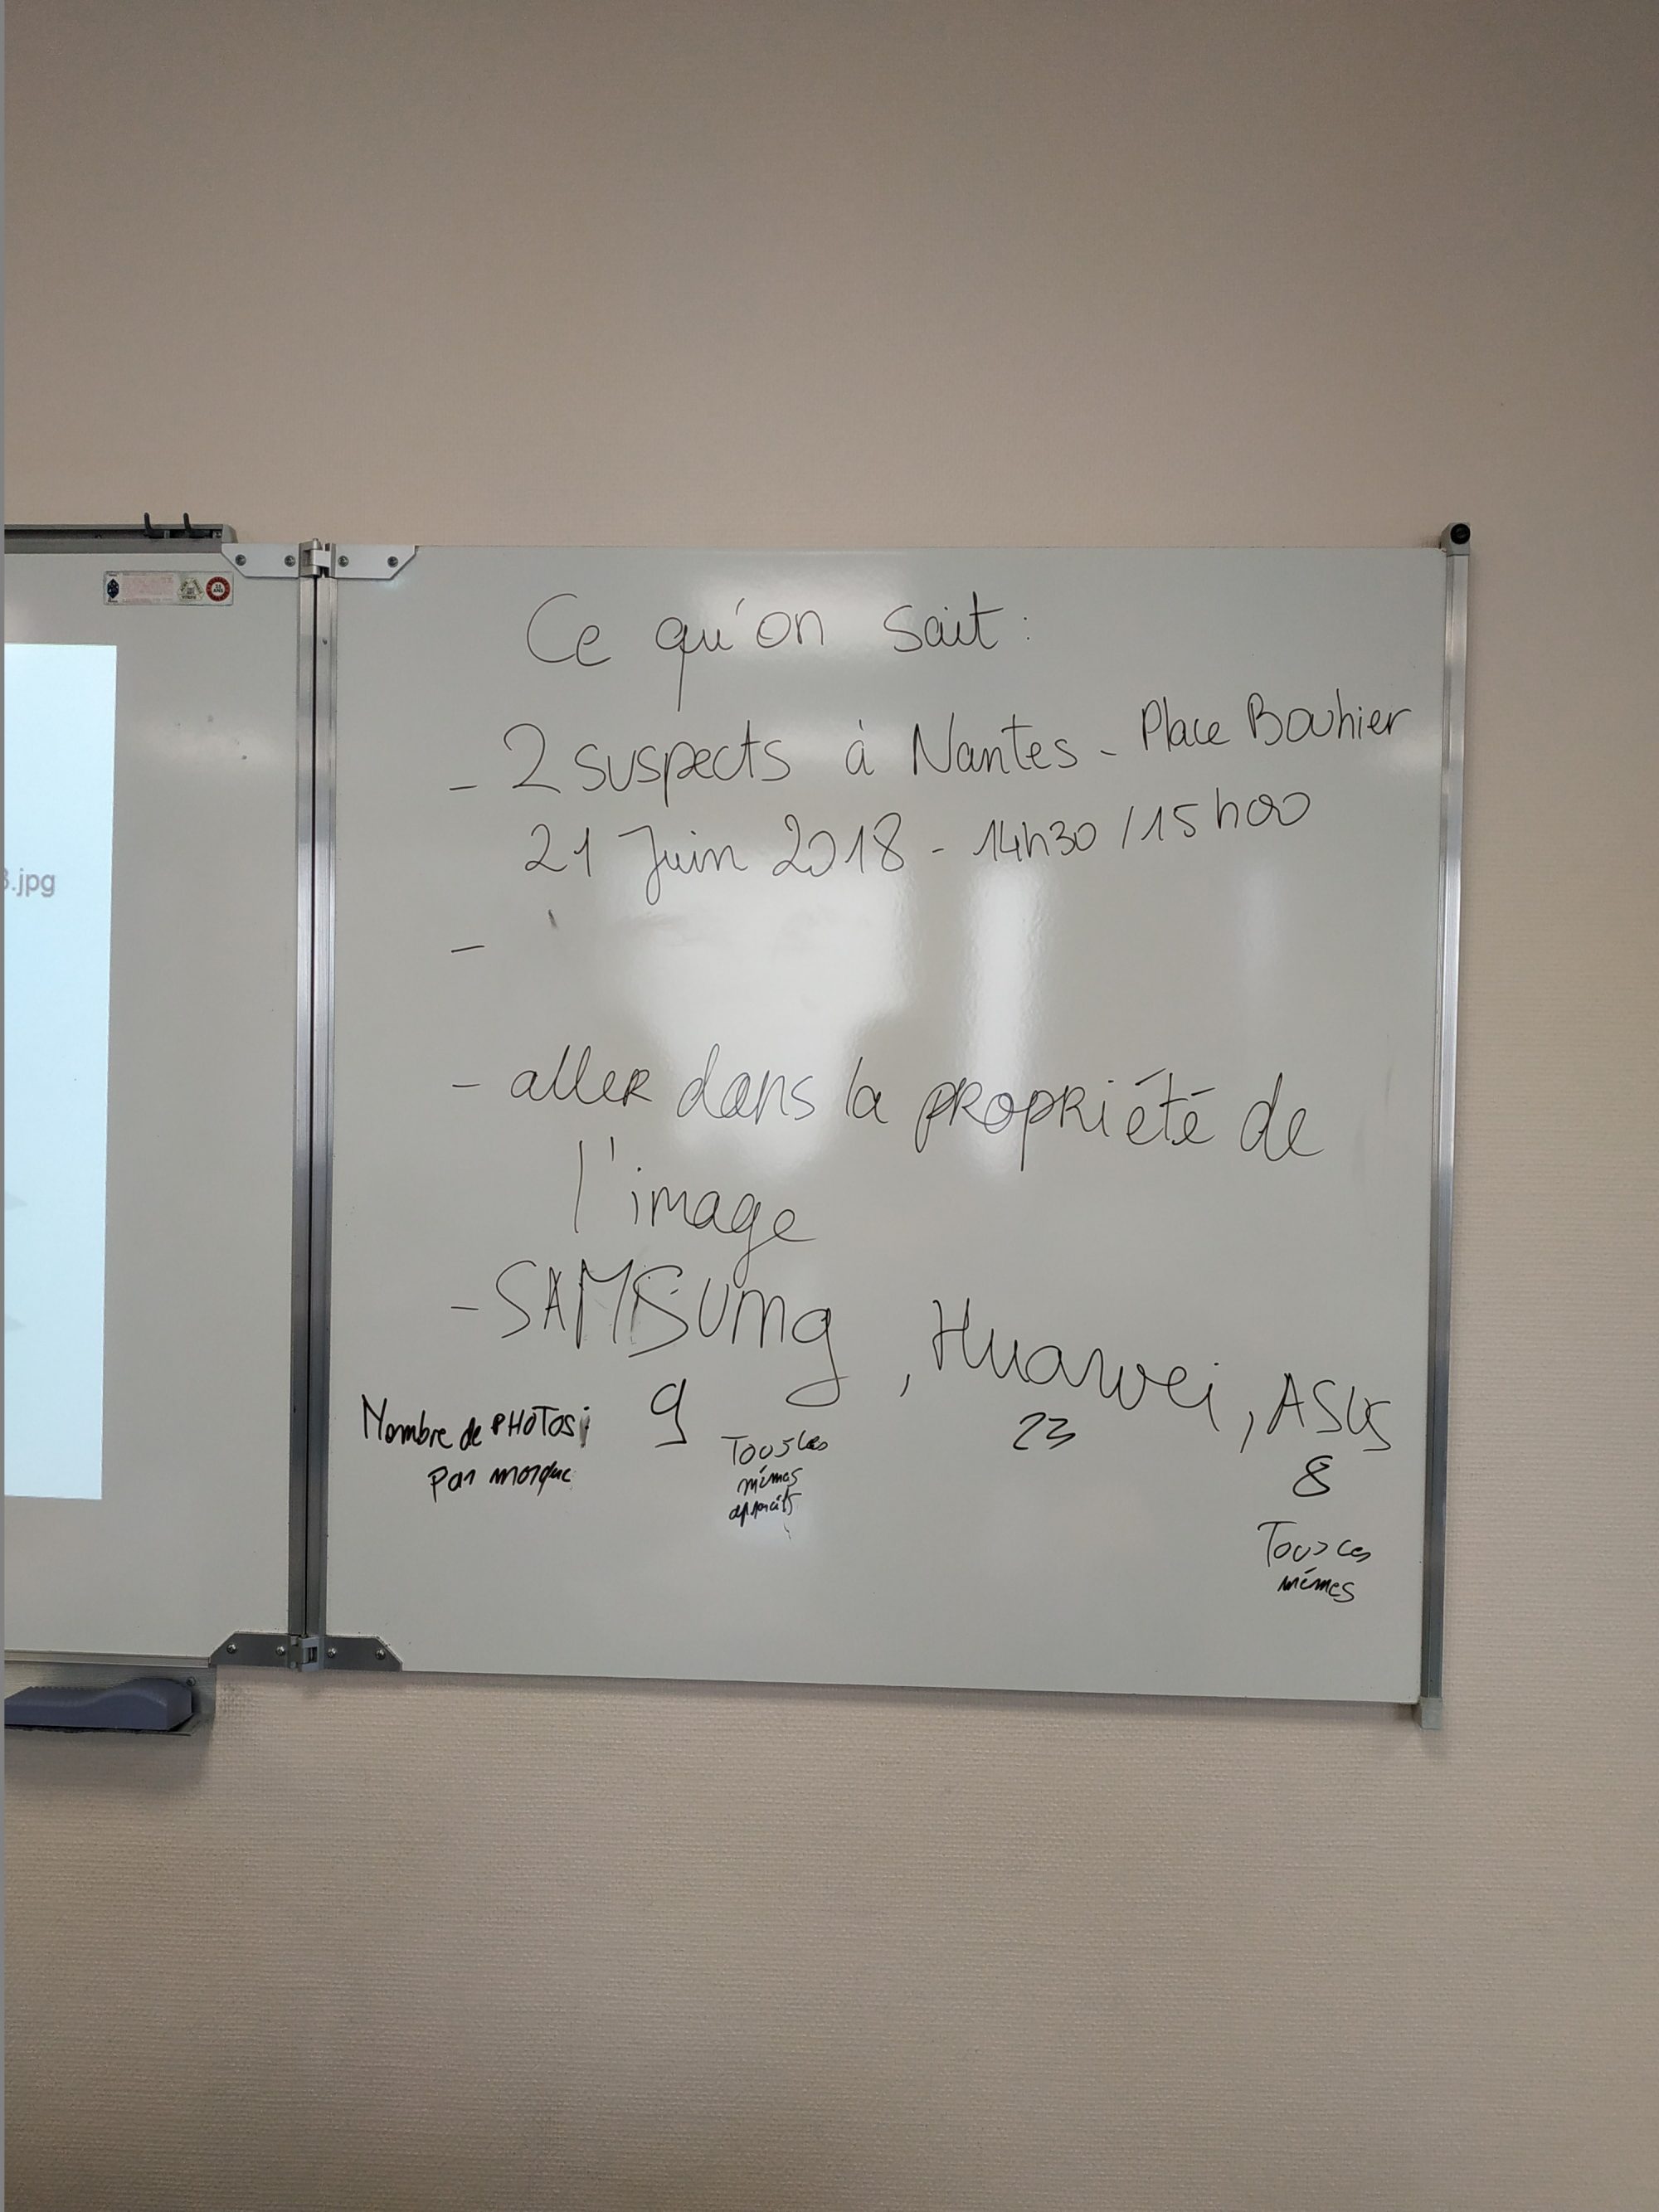 3.jpg
Ce qu'on sait :
- 2 suspects à Nantes - Place Bouhier
21 Juin 2018 - 14h30 / 15h00
-
- aller dans la propriété de
l'image
- SAMSUng, Huawei, ASUS
Nombre de PHOTOS : 9 23 8
par marque
Tous les
mêmes
appareils
Tous les
mêmes